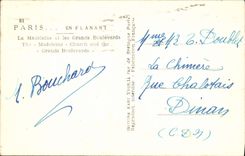 PARIS... EN FLANANT
La Madeleine et les Grands Boulevards
The Madeleine Church and the
Grands Boulevards
Mme et Mr E. Doublet
La Chimère
Rue Chalotais
Dinan
(C.D.N)
A. Bouchard